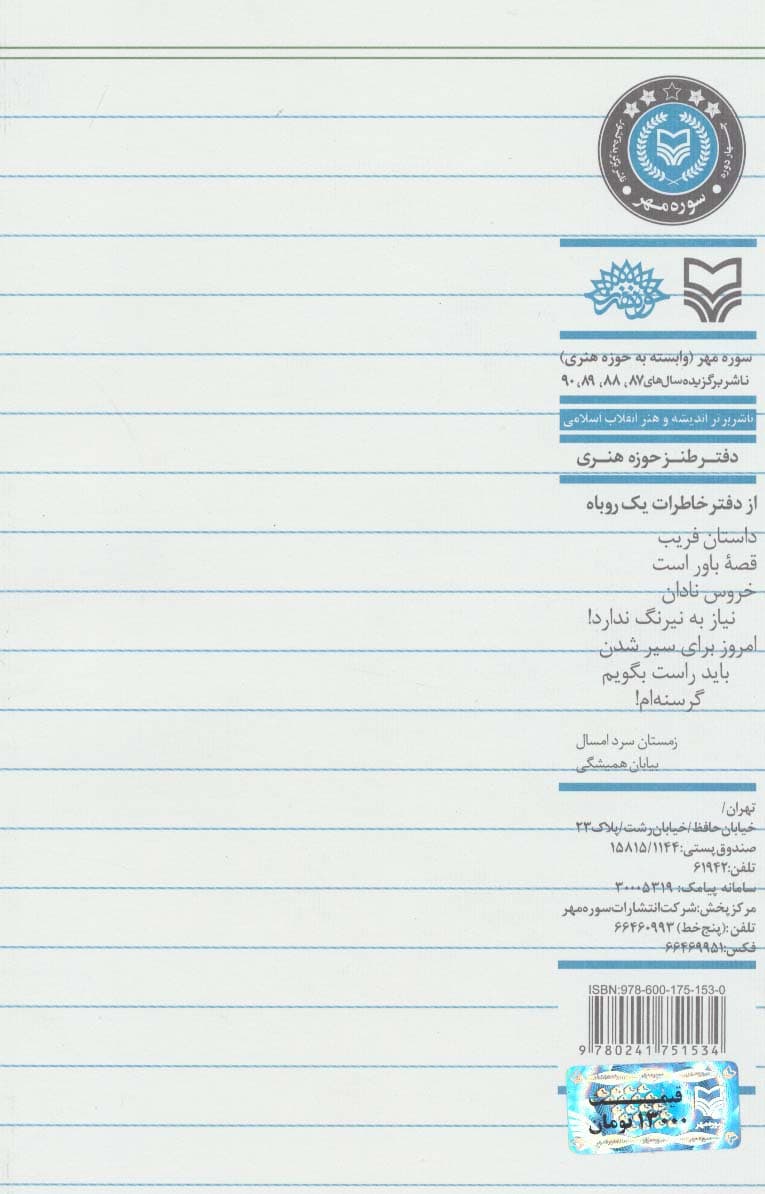 سوره مهر
سوره مهر (وابسته به حوزه هنری)
ناشر برگزیده سال‌های ۸۷، ۸۸، ۸۹، ۹۰
ناشر برتر اندیشه و هنر انقلاب اسلامی
دفتر طنز حوزه هنری
از دفتر خاطرات یک روباه
داستان فریب
قصهٔ باور است
خروس نادان
نیاز به نیرنگ ندارد!
امروز برای سیر شدن
باید راست بگویم
گرسنه‌ام!
زمستان سرد امسال
بیابان همیشگی
تهران/
خیابان حافظ/خیابان رشت/پلاک ۲۳
صندوق پستی: ۱۵۸۱۵/۱۱۴۴
تلفن: ۶۱۹۴۲
سامانه پیامک: ۳۰۰۰۵۳۱۹
مرکز پخش: شرکت انتشارات سوره مهر
تلفن: (پنج خط) ۶۶۴۶۰۹۹۳
فکس: ۶۶۴۶۹۹۵۱
ISBN:978-600-175-153-0
9 780241 751534
قیمت
۱۳۰۰۰ تومان